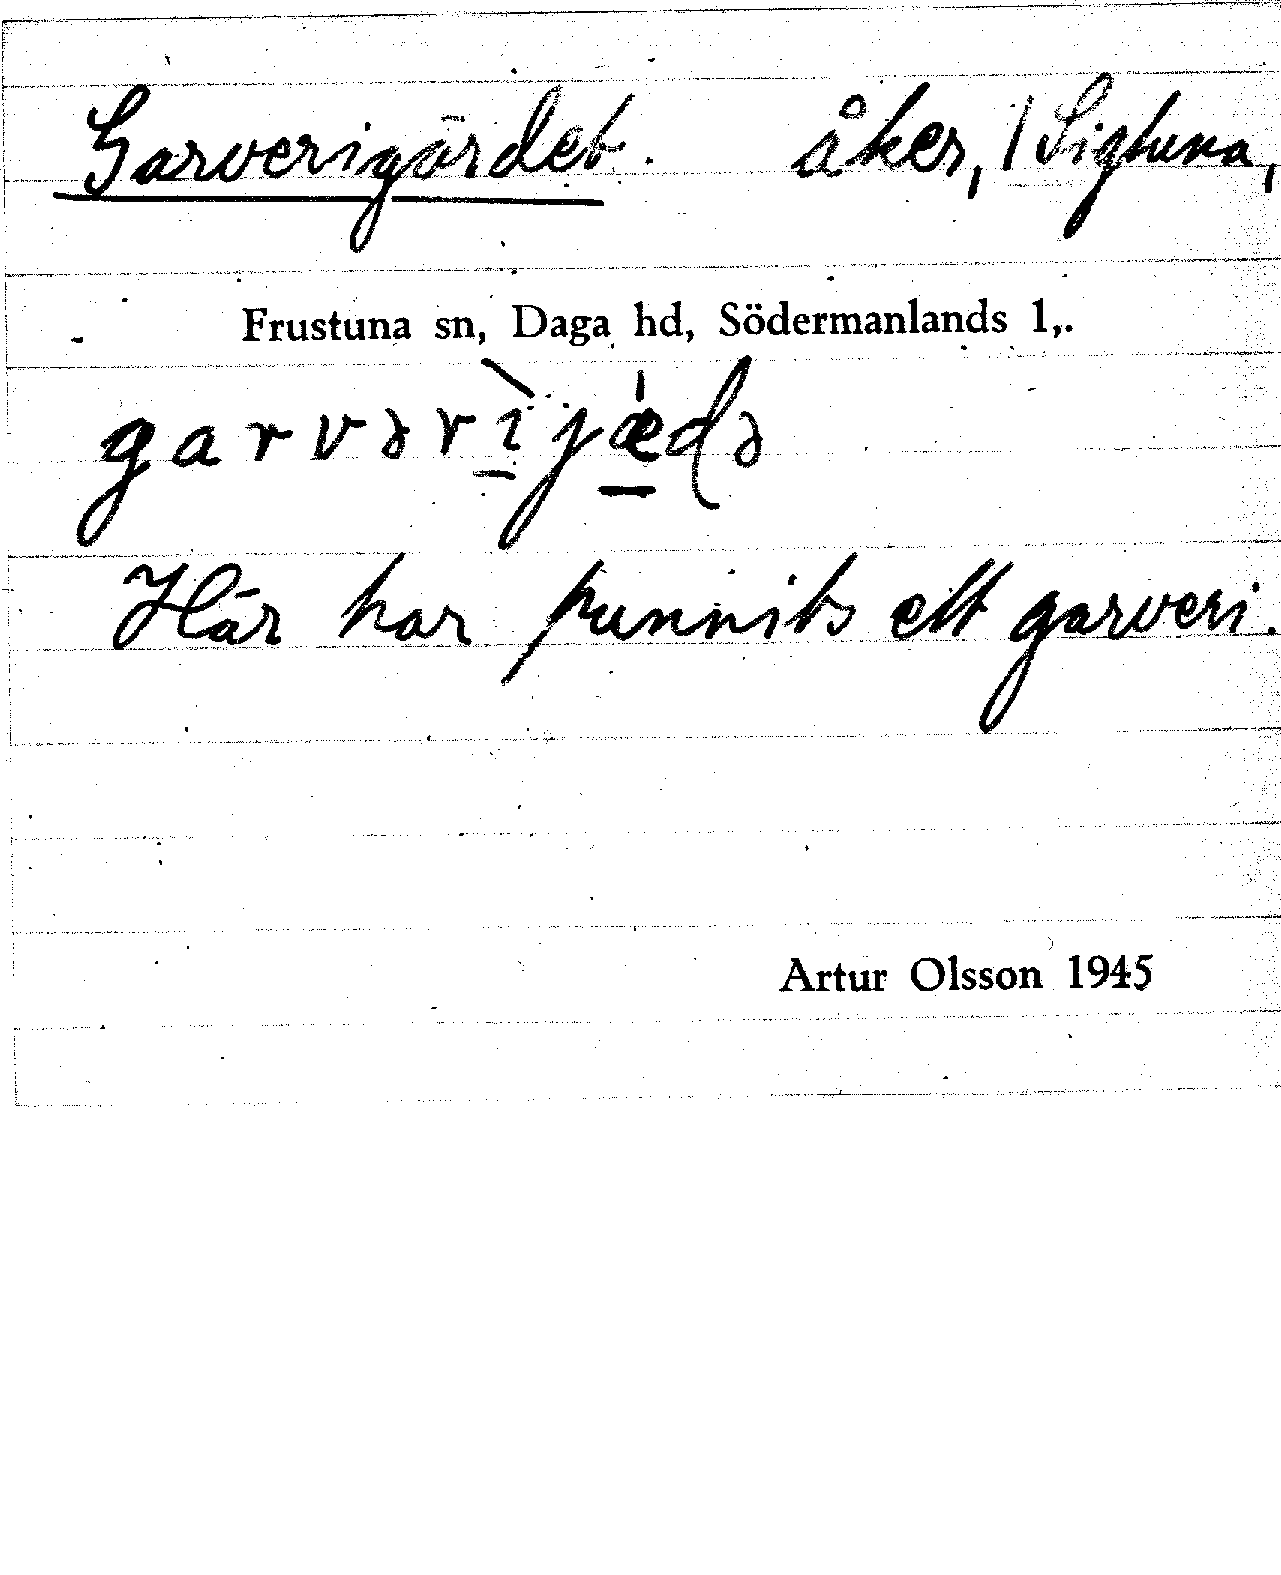 Garverigärdet. åker, / Sigtuna,
Frustuna sn, Daga hd, Södermanlands l,.
garvərì̱jǽ̱də
Här har funnits ett garveri.
Artur Olsson 1945